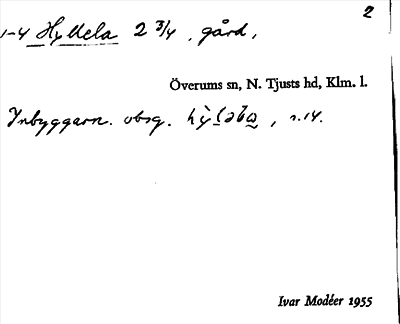 2
1-4 Hyllela 2 3/4, gård,
Överums sn, N. Tjusts hd, Klm. l.
Inbyggarn. obsg. , s. 14.
Ivar Modéer 1955